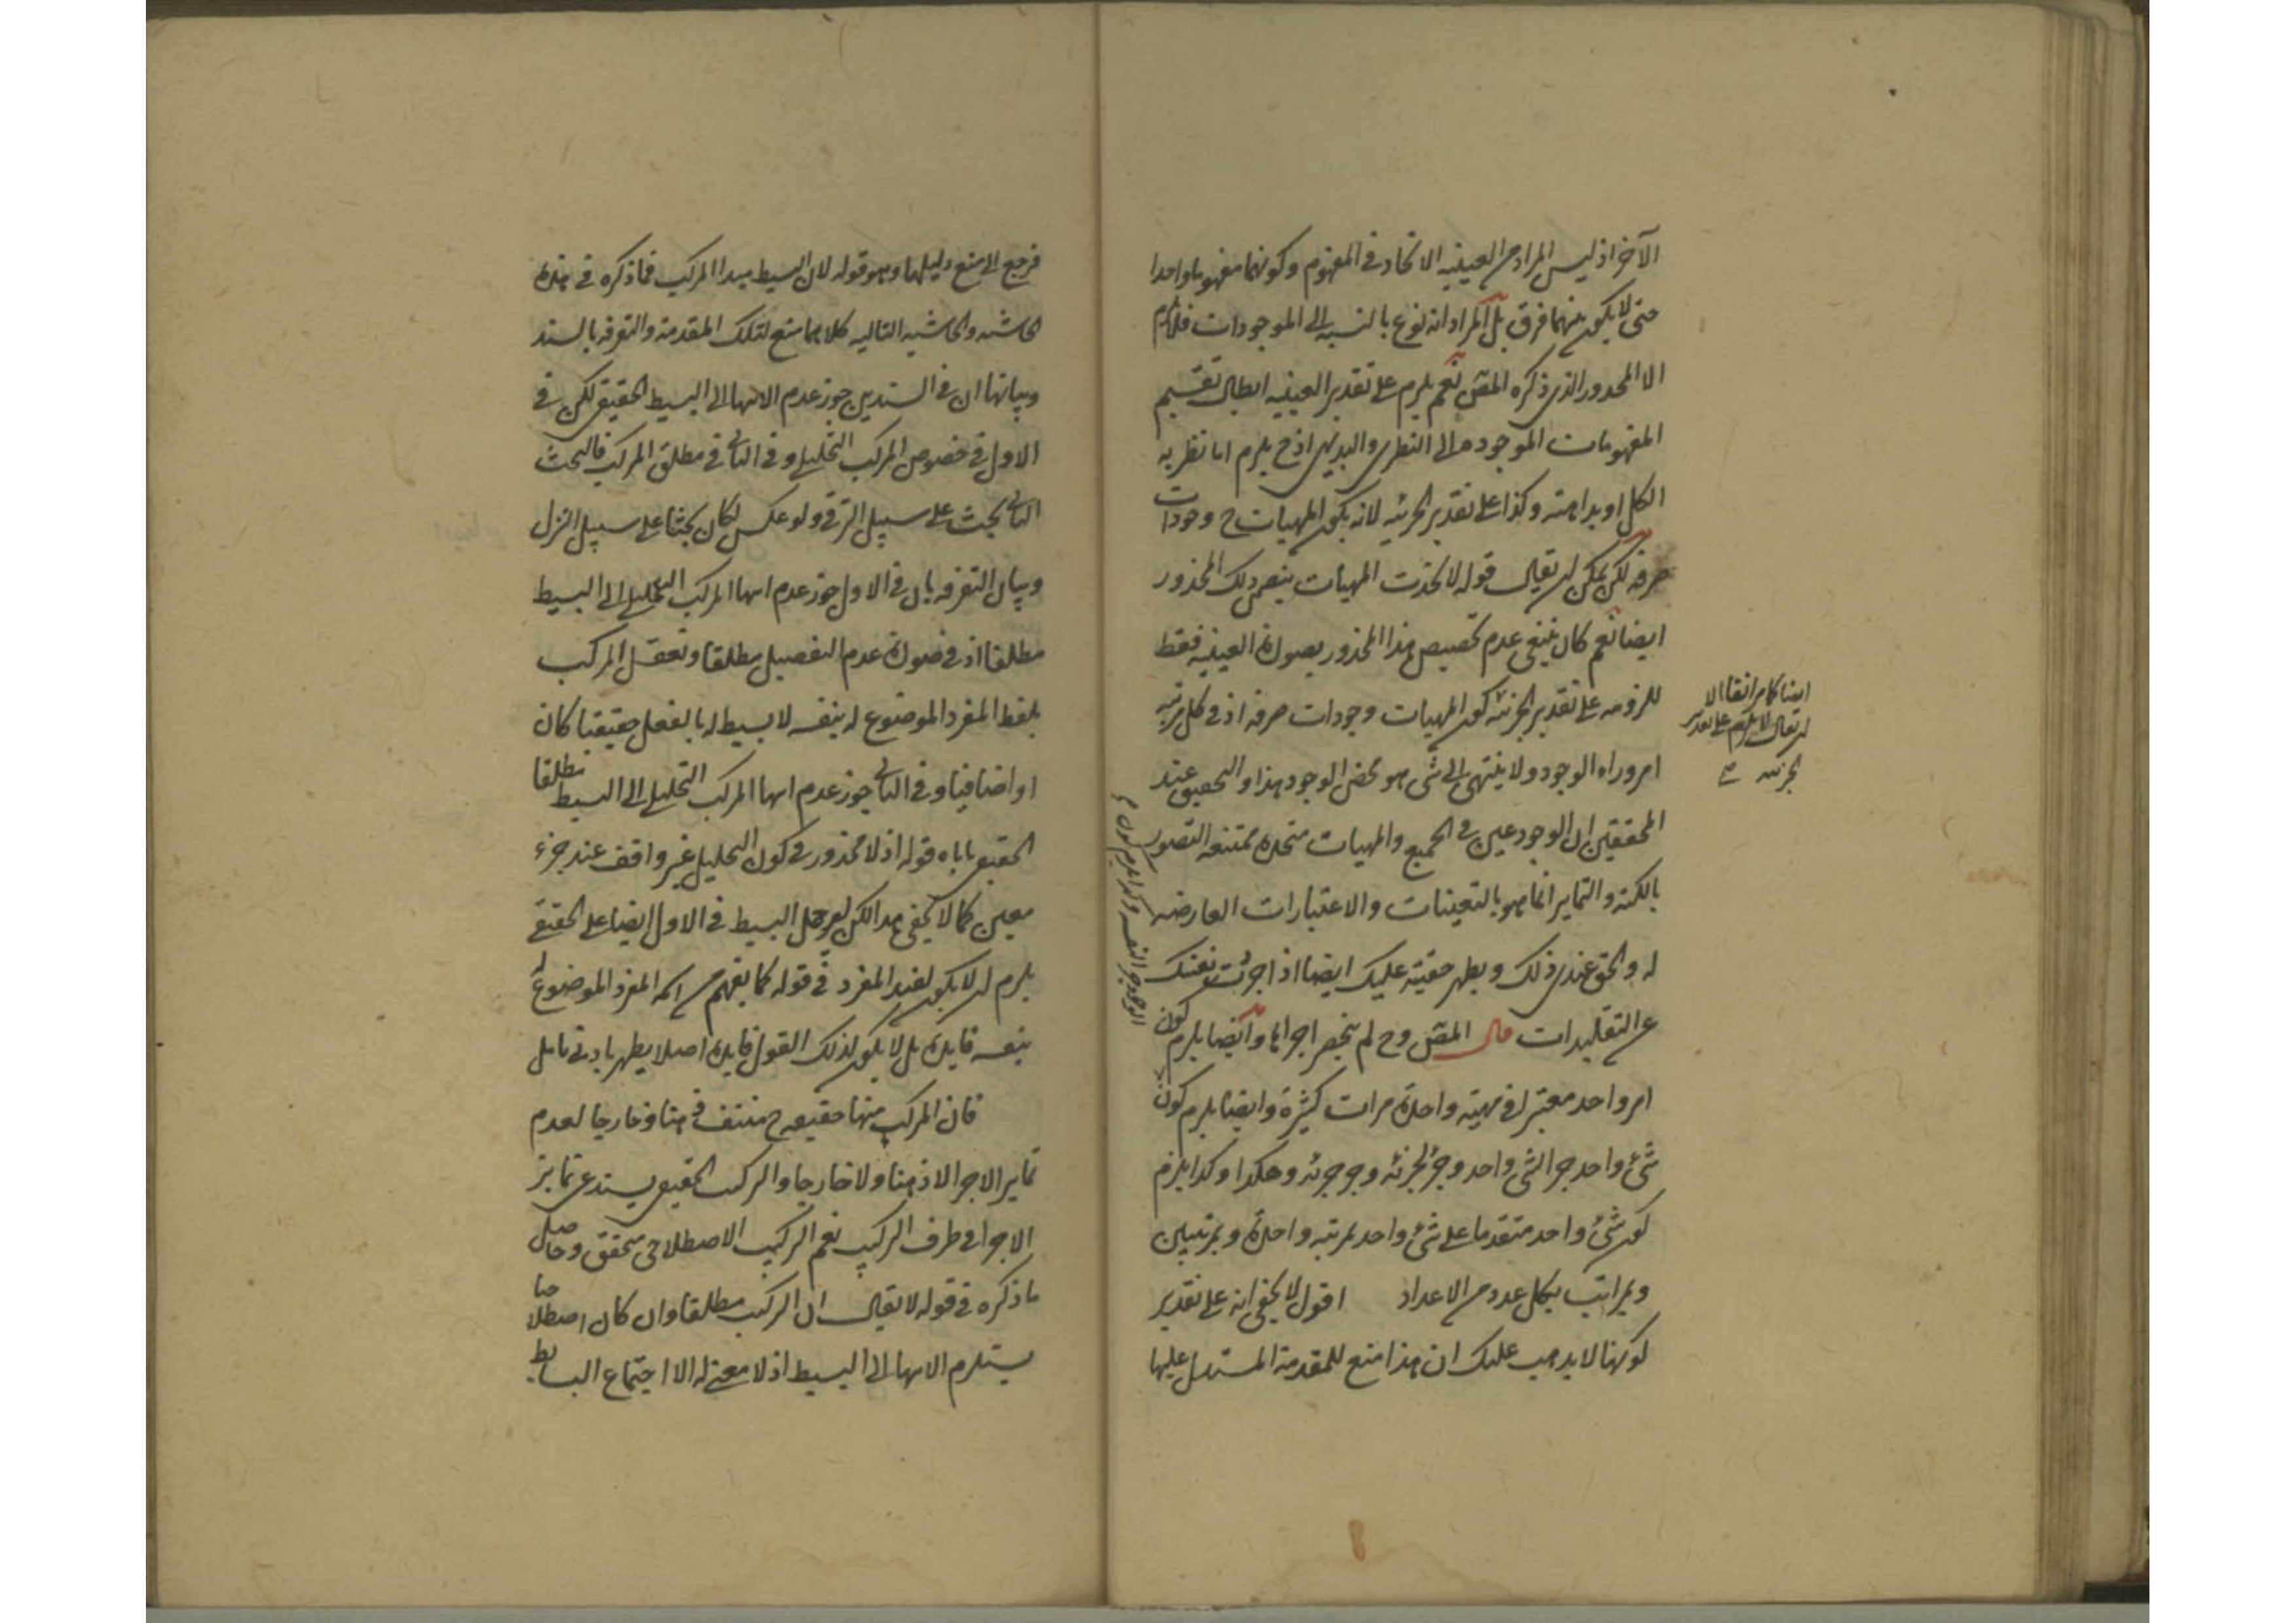 الآخر اذ ليس المراد من العينيه الاتحاد في المفهوم وكونهما مفهوما واحدا
حتى لا يكون بينهما فرق بل المراد انه نوع بالنسبه الى الموجودات فلا يلزم
الا المحدور الذي ذكره المص نعم يلزم على تقدير العينيه ابطال تقسيم
المفهومات الموجوده الى النظرى والبديهى اذ ح يلزم اما نظريه
الكل او بداهته وكذا على تقدير الجزئيه لانه يكون المهيات ح وجودات
صرفه لكن يمكن ان يقال قوله لاتحدت المهيات يتضمن ذلك المحذور
ايضا نعم كان ينبغي عدم تخصيص هذا المحذور بصورة العينيه فقط
للزومه على تقدير الجزئيه كون المهيات وجودات صرفه اذ في كل مرتبه
امر وراء الوجود ولا ينتهى الى شئ هو محض الوجود هذا والتحقيق عند
المحققين ان الوجود عين في الجميع والمهيات متحدة ممتنعه التصور
بالكنه والتمايز انما هو بالتعينات والاعتبارات العارضه
له والحق عندى ذلك ويظهر حقيته عليك ايضا اذا جردت نفسك
عن التقليدات قال المص وح لم ينحصر اجزائها وايضا يلزم كون
امر واحد معتبرا في مهيته واحدة مرات كثيرة وايضا يلزم كون
شئ واحد جزا لشئ واحد وجزء لجزئه وجزء جزئه وهكذا وكذا يلزم
كون شئ واحد متقدما على شئ واحد بمرتبه واحدة وبمرتبتين
وبمراتب بكل عدد من الاعداد اقول لا يخفى انه على تقدير
كونها لا يذهب عليك ان هذا منع للمقدمة المستدل عليها
ايضا كما مر اتفا الا
ان يقال لا يلزم على تقدير
الجزئيه
فرجع الى منع دليلها وهو قوله لان البسيط مبدا المركب فما ذكره في هذه
الحاشيه والحاشيه التاليه كلاهما منع لتلك المقدمة والتفرقه بالسند
وبيانها ان في السندين جوز عدم الانتها الى البسيط الحقيقي لكن في
الاول في خصوص المركب التحليلي وفي الثاني في مطلق المركب فالبحث
الثاني بحث على سبيل الترقي ولو عكس لكان بحثا على سبيل التنزل
وبيان التفرقه بان في الاول جوز عدم انتها المركب التحليلي الى البسيط
مطلقا اذ في صورة عدم التفصيل مطلقا وتعقل المركب
بلفظ المفرد الموضوع له بنفسه لا بسيط له بالفعل حقيقيا كان
او اضافيا وفي الثاني جوز عدم انتها المركب التحليلي الى البسيط مطلقا
الحقيقي ياباه قوله اذ لا محذور في كون التحليل غير واقف عند جزء
معين كما لا يخفى هذا لكن لو حمل البسيط في الاول ايضا على الحقيقي
يلزم ان لا يكون لقيد المفرد في قوله كما يفهم من اسمه المفرد الموضوع له
بنفسه فايدة بل لا يكون لذلك القول فايدة اصلا يظهر بادنى تامل
فان المركب منها حقيقه ح منتف ذهنا وخارجا لعدم
تمايز الاجزا لا ذهنا ولا خارجا والتركيب الحقيقي يستدعي تمايز
الاجزا في طرف التركيب نعم التركيب الاصطلاحي متحقق وحاصل
ما ذكره في قوله لا يقال ان التركيب مطلقا وان كان اصطلاحيا
يستلزم الانتها الى البسيط اذ لا معنى له الا اجتماع البسايط